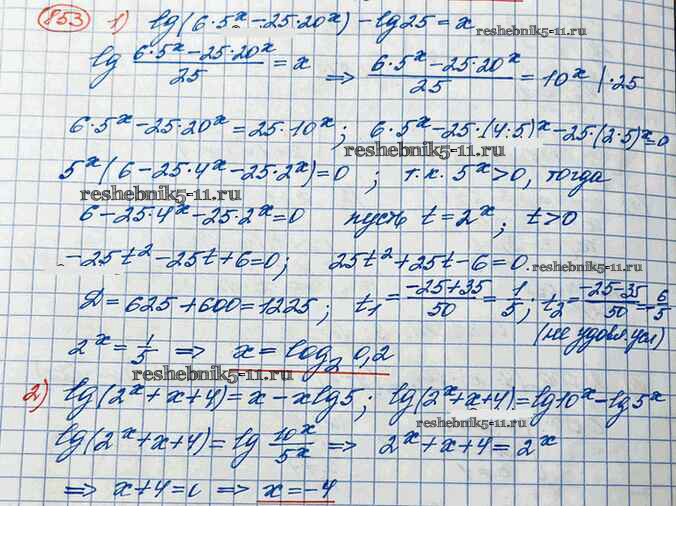 853 1) lg(6·5^x − 25·20^x) − lg25 = x
reshebnik5-11.ru
lg (6·5^x − 25·20^x)/25 = x ⇒ (6·5^x − 25·20^x)/25 = 10^x |·25
6·5^x − 25·20^x = 25·10^x; 6·5^x − 25·(4·5)^x − 25·(2·5)^x = 0
reshebnik5-11.ru
5^x(6 − 25·4^x − 25·2^x) = 0; т.к. 5^x > 0, тогда
reshebnik5-11.ru
6 − 25·4^x − 25·2^x = 0 пусть t = 2^x; t > 0
−25t² − 25t + 6 = 0; 25t² + 25t − 6 = 0
reshebnik5-11.ru
D = 625 + 600 = 1225; t₁ = (−25+35)/50 = 1/5; t₂ = (−25−35)/50 = −6/5
reshebnik5-11.ru
(не удовл. усл)
2^x = 1/5 ⇒ x = log₂ 0,2
reshebnik5-11.ru
2) lg(2^x + x + 4) = x − x lg5; lg(2^x + x + 4) = lg10^x − lg5^x
reshebnik5-11.ru
lg(2^x + x + 4) = lg 10^x/5^x ⇒ 2^x + x + 4 = 2^x
⇒ x + 4 = ⇒ x = −4
reshebnik5-11.ru